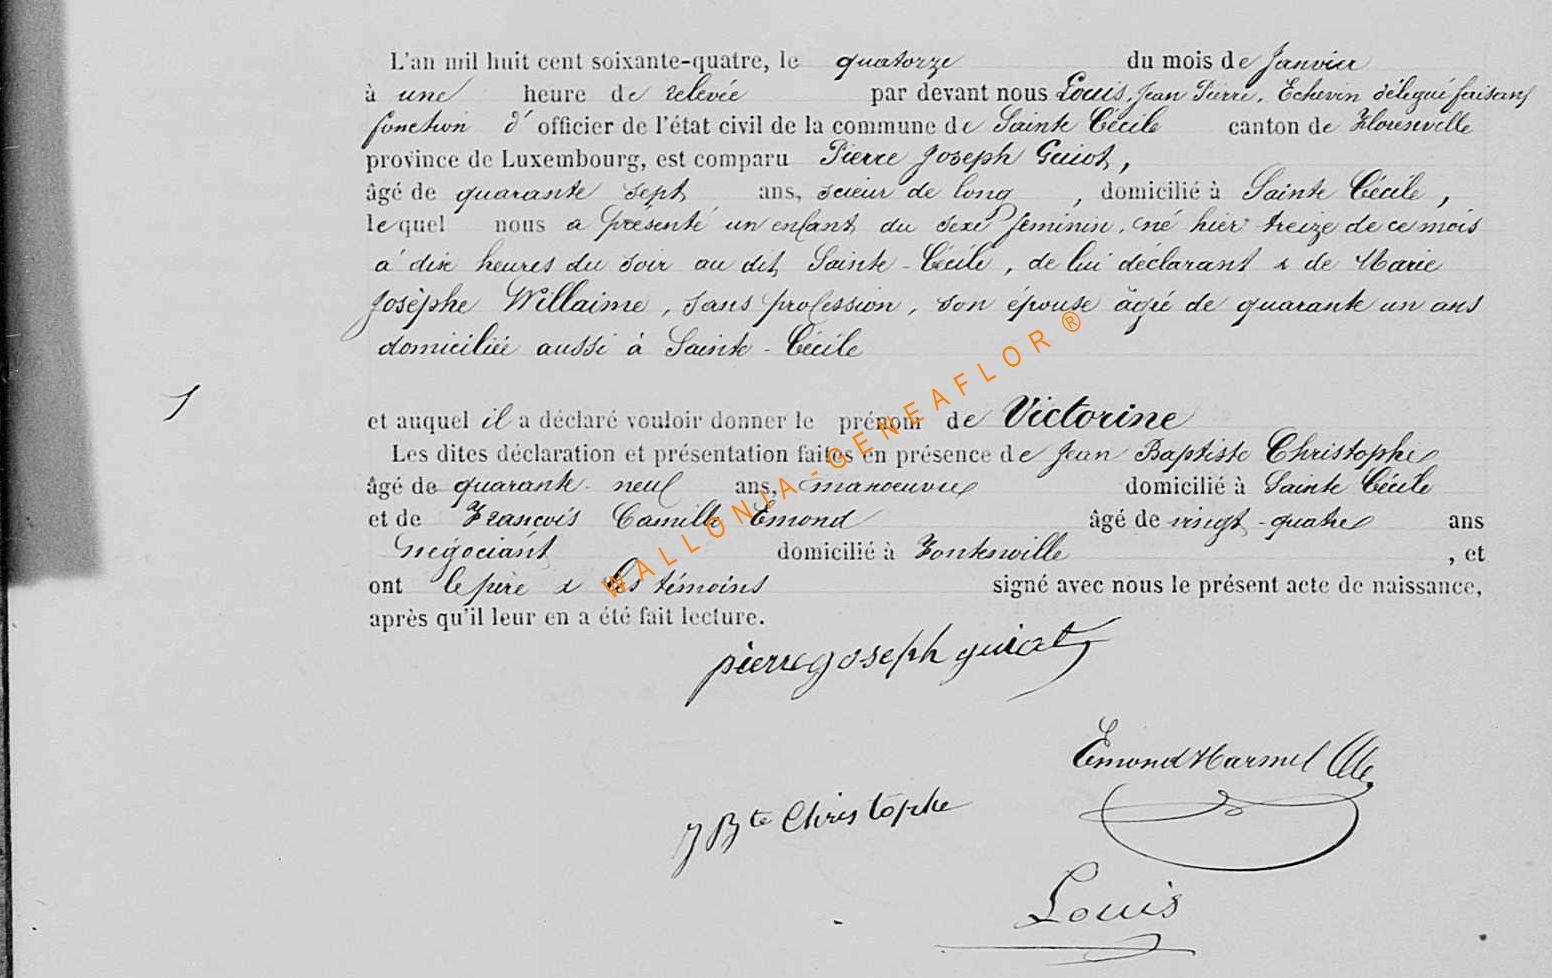 L'an mil huit cent soixante-quatre, le quatorze du mois de Janvier
à une heure de relevée par devant nous Louis, Jean Pierre, Echevin délégué faisant
fonction d' officier de l'état civil de la commune de Sainte Cécile canton de Florenville
province de Luxembourg, est comparu Pierre Joseph Guiot,
âgé de quarante sept ans, scieur de long, domicilié à Sainte Cécile,
lequel nous a présenté un enfant du sexe féminin, né hier treize de ce mois
à dix heures du soir au dit Sainte-Cécile, de lui déclarant & de Marie
Josèphe Willaime, sans profession, son épouse âgée de quarante un ans
domiciliée aussi à Sainte-Cécile
1
et auquel il a déclaré vouloir donner le prénom de Victorine
Les dites déclaration et présentation faites en présence de Jean Baptiste Christophe
âgé de quarante-neuf ans, manoeuvre domicilié à Sainte Cécile
et de François Camille Emond âgé de vingt-quatre ans
négociant domicilié à Fontenoille, et
ont le père & les témoins signé avec nous le présent acte de naissance,
après qu'il leur en a été fait lecture.
pierre joseph guiot
Emond Harmel
J Bte Christophe
Louis
WALLONIA-GENEAFLOR®